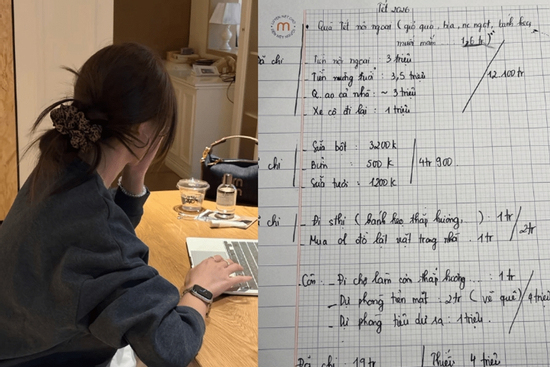 Tết 2026
- Quà Tết nội ngoại (giỏ quà, bia, nc ngọt, bánh kẹo,
mứt mắm 1,6 tr)
- Tiền nội ngoại: 3 triệu
- Tiền mừng tuổi: 3,5 triệu
- Q. áo cả nhà: ~ 3 triệu
- Xe cộ đi lại: 1 triệu
12.100tr
chi
- Sữa bột: 3200k
- Bỉm: 500k
- Sữa tươi: 1200k
4tr900
chi
- Đi sthi (bánh kẹo thắp hương, ): 1tr
- Mua đồ lặt vặt trong nhà: 1tr
2tr
chi
Còn: - Đi chợ làm cơm thắp hương...: 1tr
- Dự phòng tiền mặt: 2tr (về quê)
- Dự phòng tiêu dư ra: 1 triệu.
4 triệu
Đã chi: 19tr
Thiếu 4 triệu